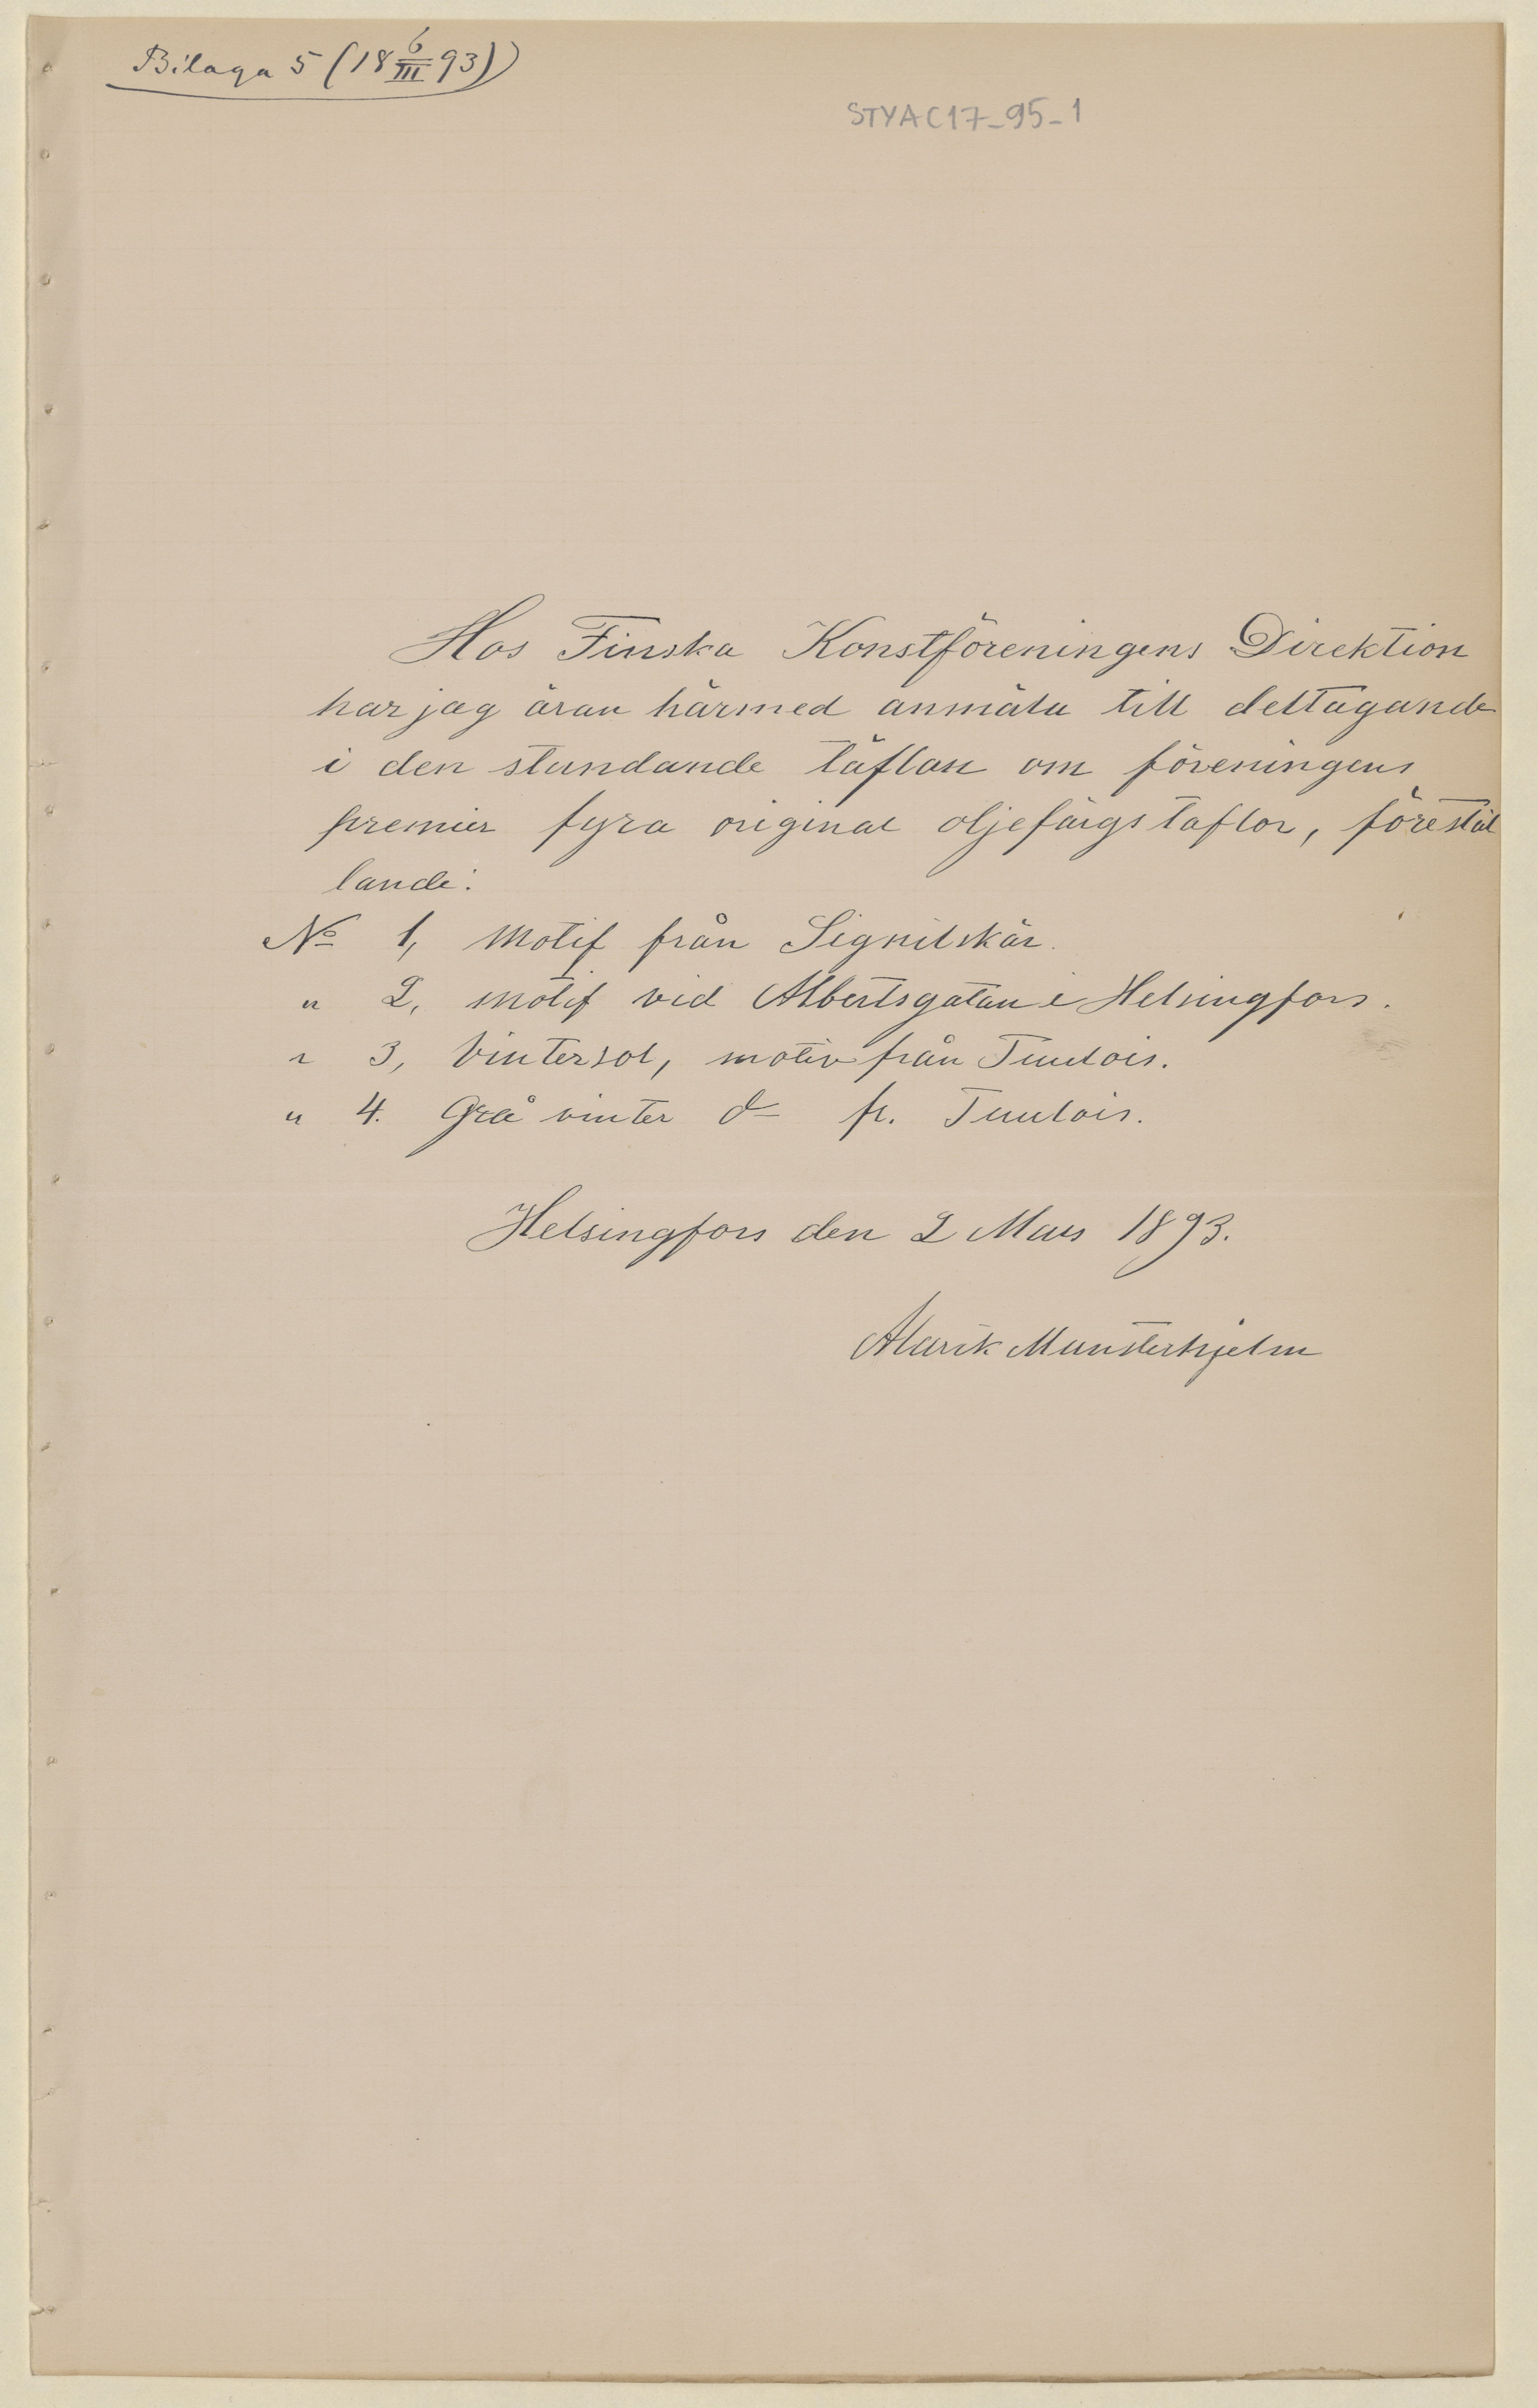 Bilaga 5 (18 6/III 93)
STYA C17_95_1
Hos Finska Konstföreningens Direktion
har jag äran härmed anmäla till deltagande
i den stundande täflan om föreningens
premier fyra original oljefärgstaflor, förestäl
lande:
No 1, Motif från Signilskär.
" 2, motif vid Albertsgatan i Helsingfors.
" 3, Vintersol, motiv från Tuulois.
" 4. Grå vinter do fr. Tuulois.
Helsingfors den 2 Mars 1893.
Alarik Munsterhjelm